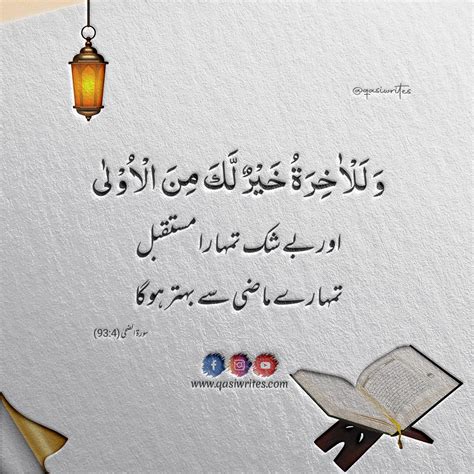 @qasiwrites
وَلَلْاٰخِرَةُ خَيْرٌ لَّكَ مِنَ الْاُوْلٰى
اور بے شک تمہارا مستقبل
تمہارے ماضی سے بہتر ہوگا
سورۃ الضحیٰ (93:4)
www.qasiwrites.com